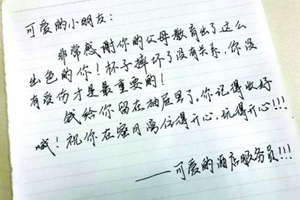 可爱的小朋友:
非常感谢你的父母教育出了这么
出色的你!杯子摔坏了没有关系,你没
有受伤才是最重要的!
钱给你留在抽屉里了,你记得收好
哦!祝你在蛋月离住得开心,玩得开心!!!
——可爱的酒店服务员!!!